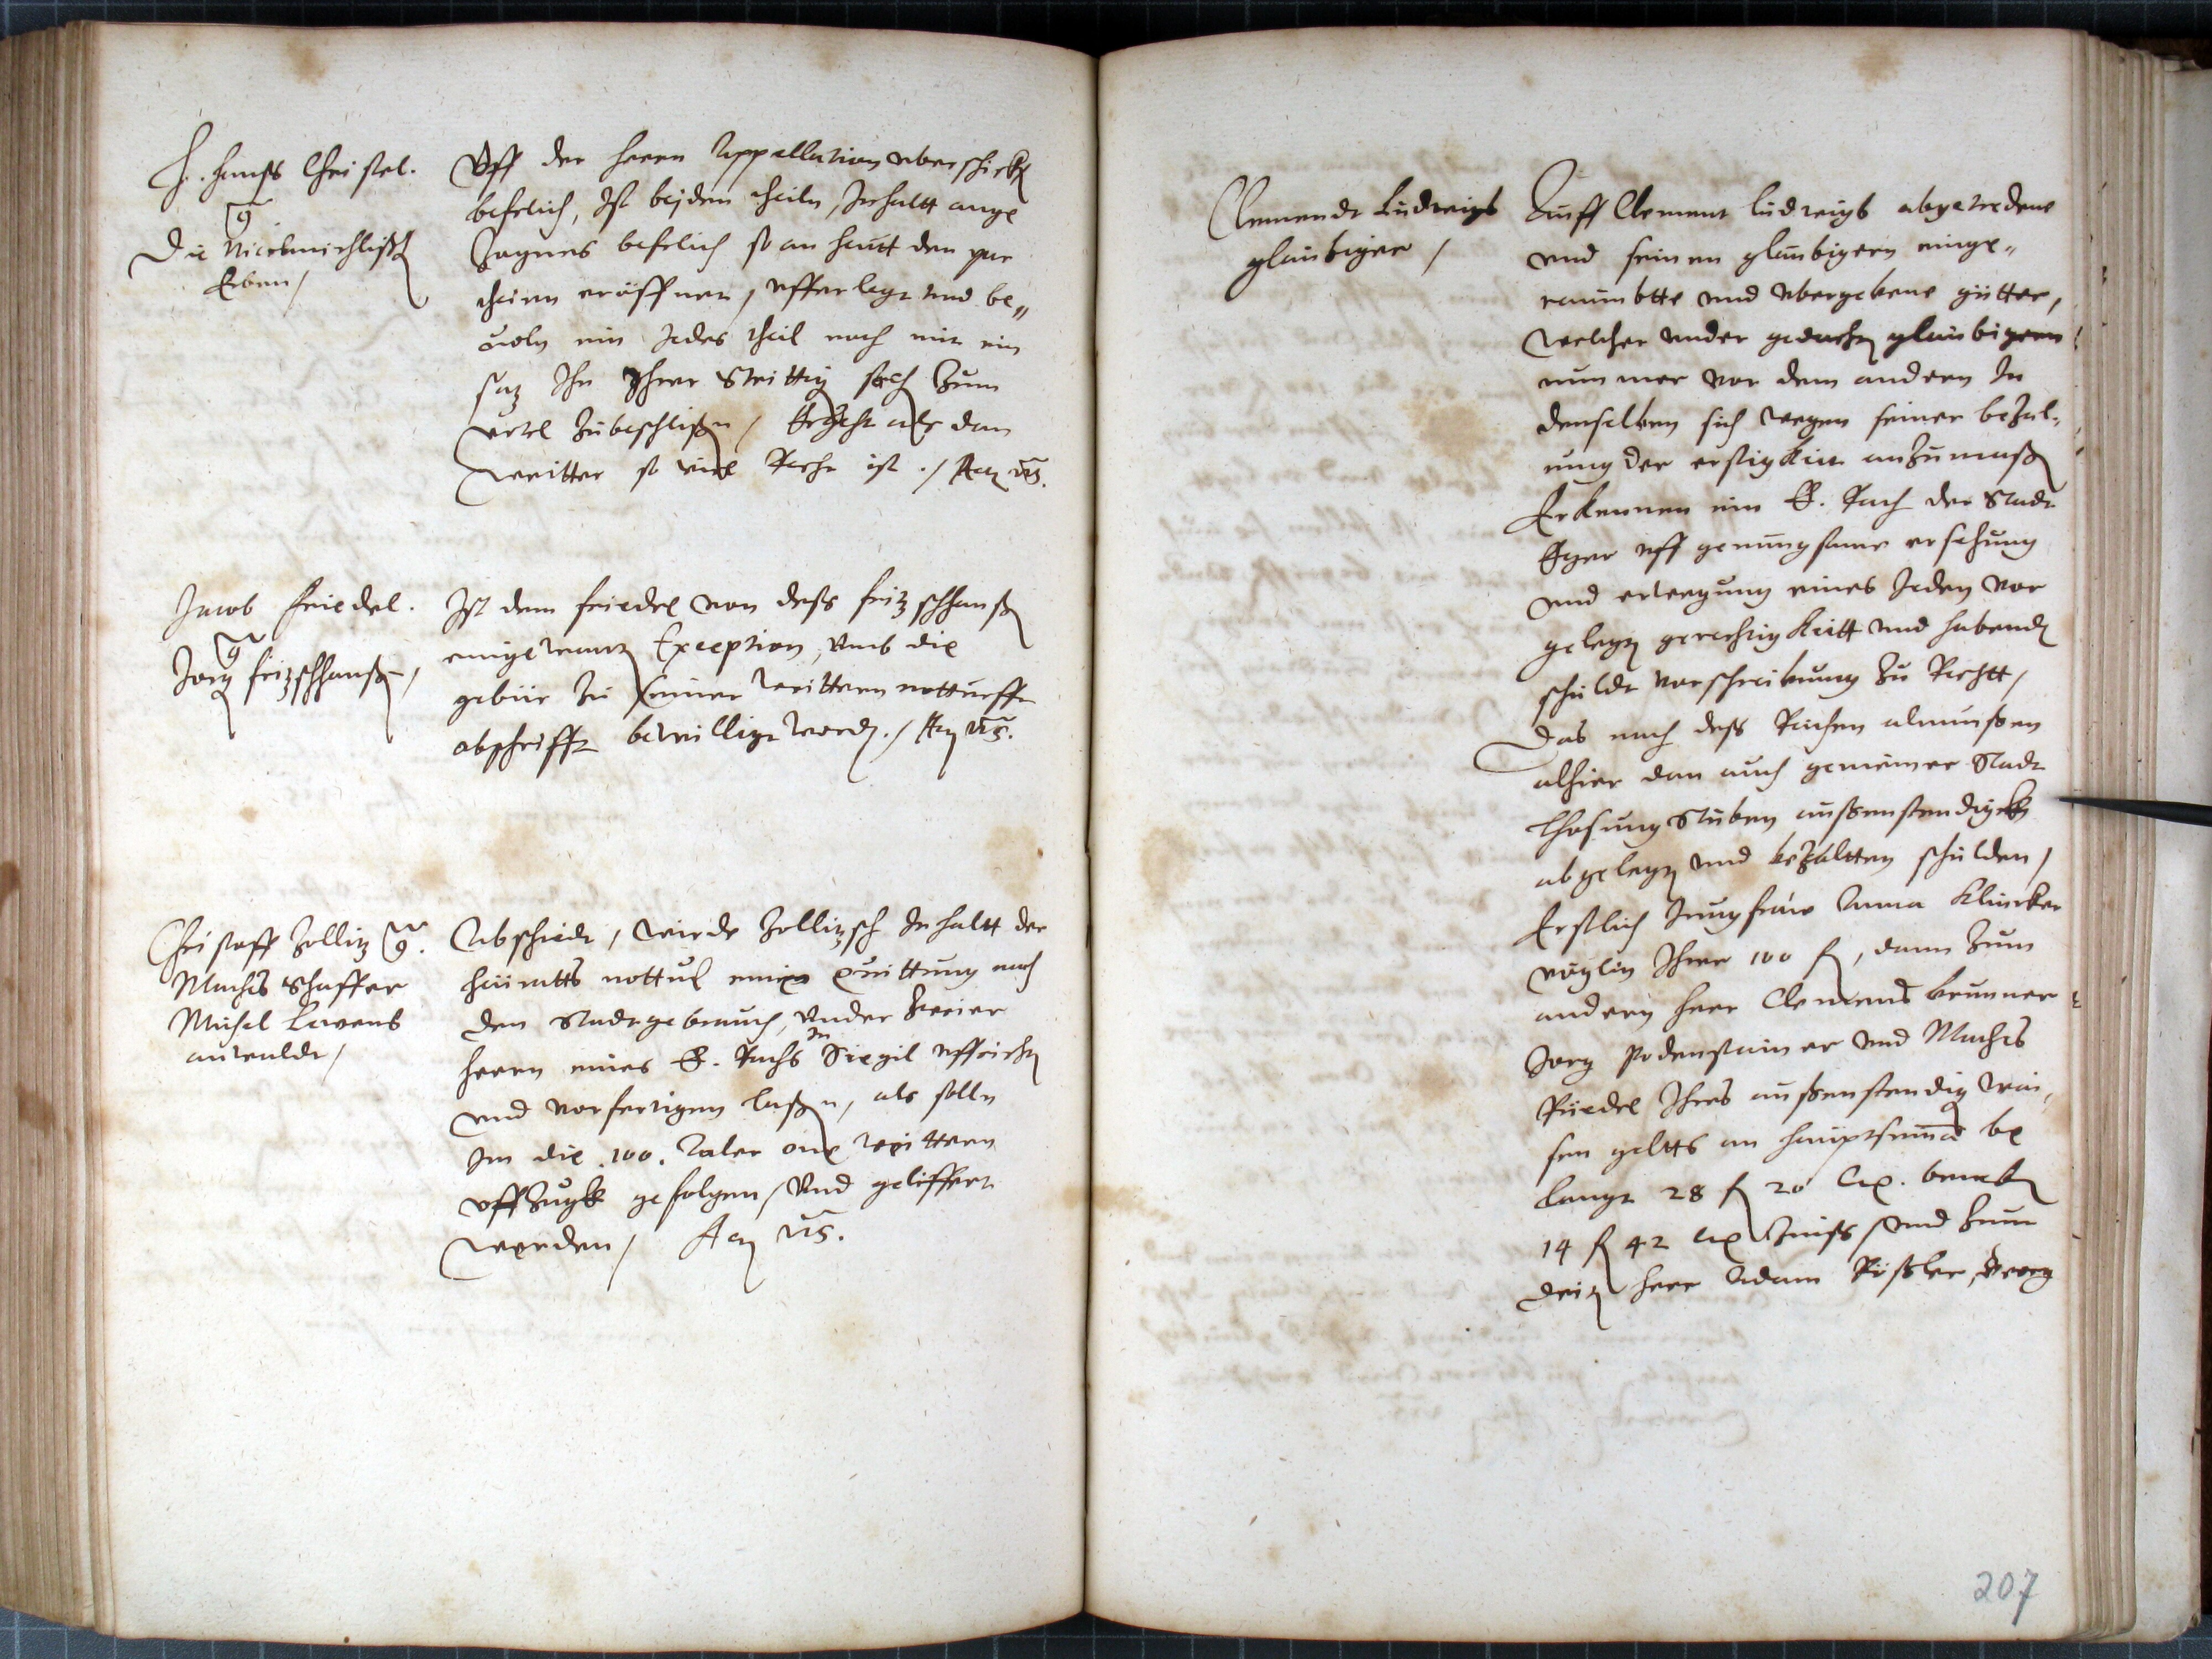 H. Hanß Christel.
Die Nickmichlischen
Erben /
Vff der Herrn Appellation vberschickten
befelich, Ist beyden theiln, Inhaltt ange
Zognes befelich so an heutt den par
theien eröffnet, vfferlegt vnd be„
uoln ein Jedes theil noch mit ein
saz Ihn Ihrer Strittig sach Zum
vrtel Zubeschlißen / Ergeht als dan
weitter so viel Recht ist ./ Act. vts.
Jacob Friedel.
Jorg Fritzschhanßen /
Ist dem Friedel von deß Fritzschhanßen
eingewantten Exception, vmb die
gebür Zu seiner weittern notturfft
abschrifft bewilligt worden. / Act. vts.
Christoff Zollitz
Mathes Schaffer
Michel Lewens
anwaldt /
Abschiedt / wirdt Zollitzsch Inhaltt der
heiratts nottul eine quittung nach
den Stadtgebrauch, vnder Zweier
Herrn eines E. Raths In Siegil vffrichten
vnd vorfertigen laßen, als solln
Im die .100. Taler one weittern
vffZugkh gefolgen / vnd geliffert
werden / Act. vts.
Clementt Ludwigs
glaubiger /
Auff Clement Ludwigs abgetredene
vnd seinen glaubigern einge„
raumbtte vnd vbergebene gütter,
welcher vnder gedachten glaubigern
nunmer vor dem andern In
denselben sich wegen seiner beZal„
ung der erstigkeit anZumaßen
Erkennen ein E. Rath der Stadt
Eger vff genungsame ersehung
vnd erwegung eines Jeden vor
gelegten gerechtigkeitt vnd habenden
schuldt vorschreibung Zu Rechtt /
Das nach deß Reichen almußen
alhier dan auch gemeiner Stadt
Losung Stuben außenstendigkh
abgelegten vnd beZaltten schulden /
Erstlich Jungfraw Anna Klincker
voglin Ihrer 100 fl, dann Zum
andern Herr Clemend Brunner
Jorg Podenstainer vnd Mathes
Riedel Ihres außenstendig wai„
sen geltts an Hauptsumma be
langt 28 fl 20 Crx. benebn
14 fl 42 Crx Zinß / vnd Zum
dritten Herr Adam Rößler, Georg
207